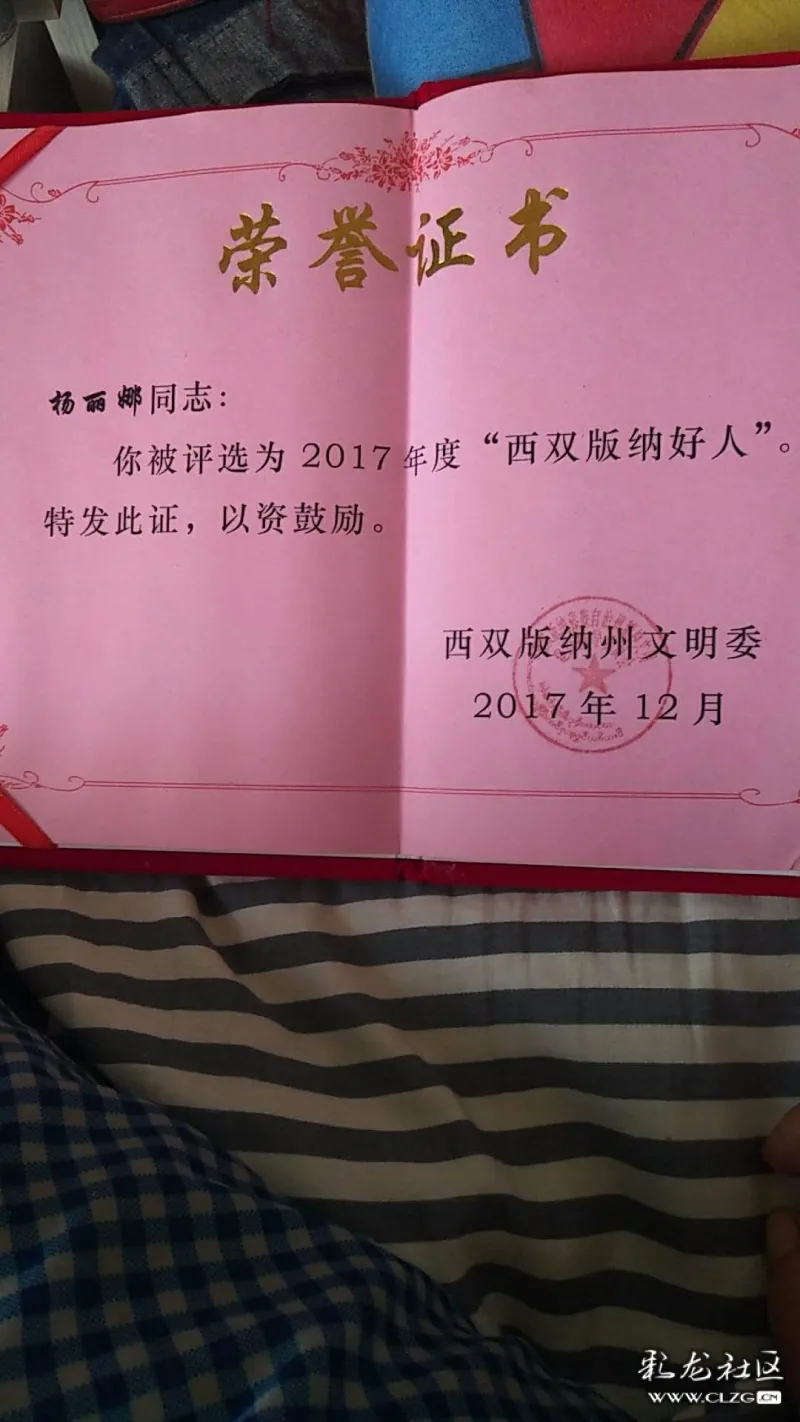 荣誉证书
杨丽娜同志：
你被评选为2017年度“西双版纳好人”。
特发此证，以资鼓励。
西双版纳州文明委
2017年12月
彩龙社区
WWW.CLZG.CN